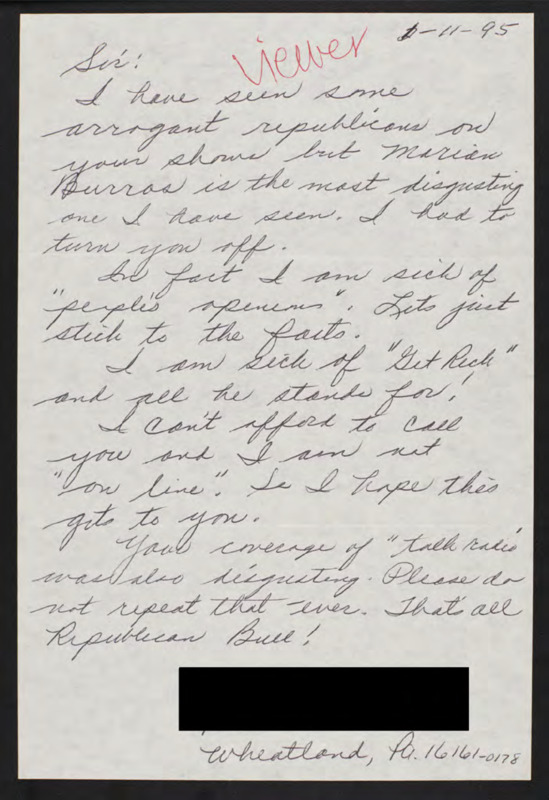 -11-95
viewer
Sir:
I have seen some
arrogant republicans on
your shows but Marian
Burros is the most disgusting
one I have seen. I had to
turn you off.
In fact I am sick of
"people's openions". Lets just
stick to the facts.
I am sick of "Get Rich"
and all he stands for!
I can't afford to call
you and I am not
"on line". So I hope this
gits to you.
Your coverage of "talk radio"
was also disgusting. Please do
not repeat that -ever. That's all
Republican Bull!
Wheatland, Pa. 16161-0178